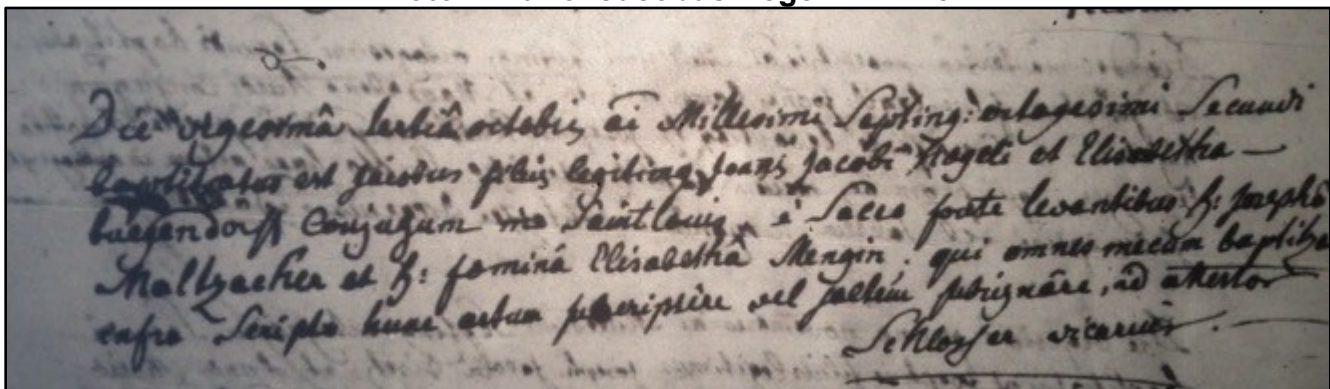 Die vigesimâ tertiâ octobris ai Millesimi Septing: octogesimi Secundi
baptizatus est Jacobus filius legitimus Joanis Jacobi Nageli et Elisabetha
Conjugum Saint Louis è Sacro fonte levantibus h: Josepho
Maltzacher et h: feminâ Elisabethâ Mengin. qui omnes mecum baptiza
infra Scripto hunc actum vel saltem signâre, id attestor
Schlosser vicarius